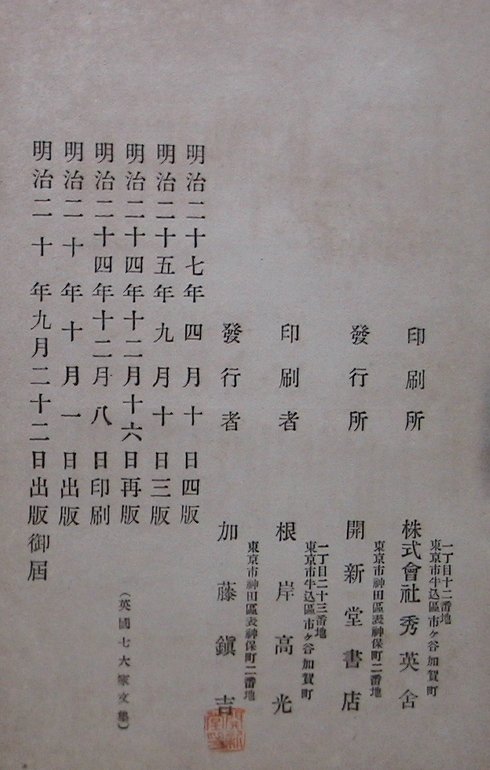 明治二十年九月二十二日出版御屆
明治二十年十月一日出版
明治二十四年十二月八日印刷
明治二十四年十二月十六日再版
明治二十五年九月十日三版
明治二十七年四月十日四版
(英國七大家文集)
發行者 加藤鎭吉
東京市神田區表神保町二番地
印刷者 根岸高光
東京市牛込區市ヶ谷加賀町
一丁目二十三番地
發行所 開新堂書店
東京市神田區表神保町二番地
印刷所 株式會社秀英舍
東京市牛込區市ヶ谷加賀町
一丁目十二番地